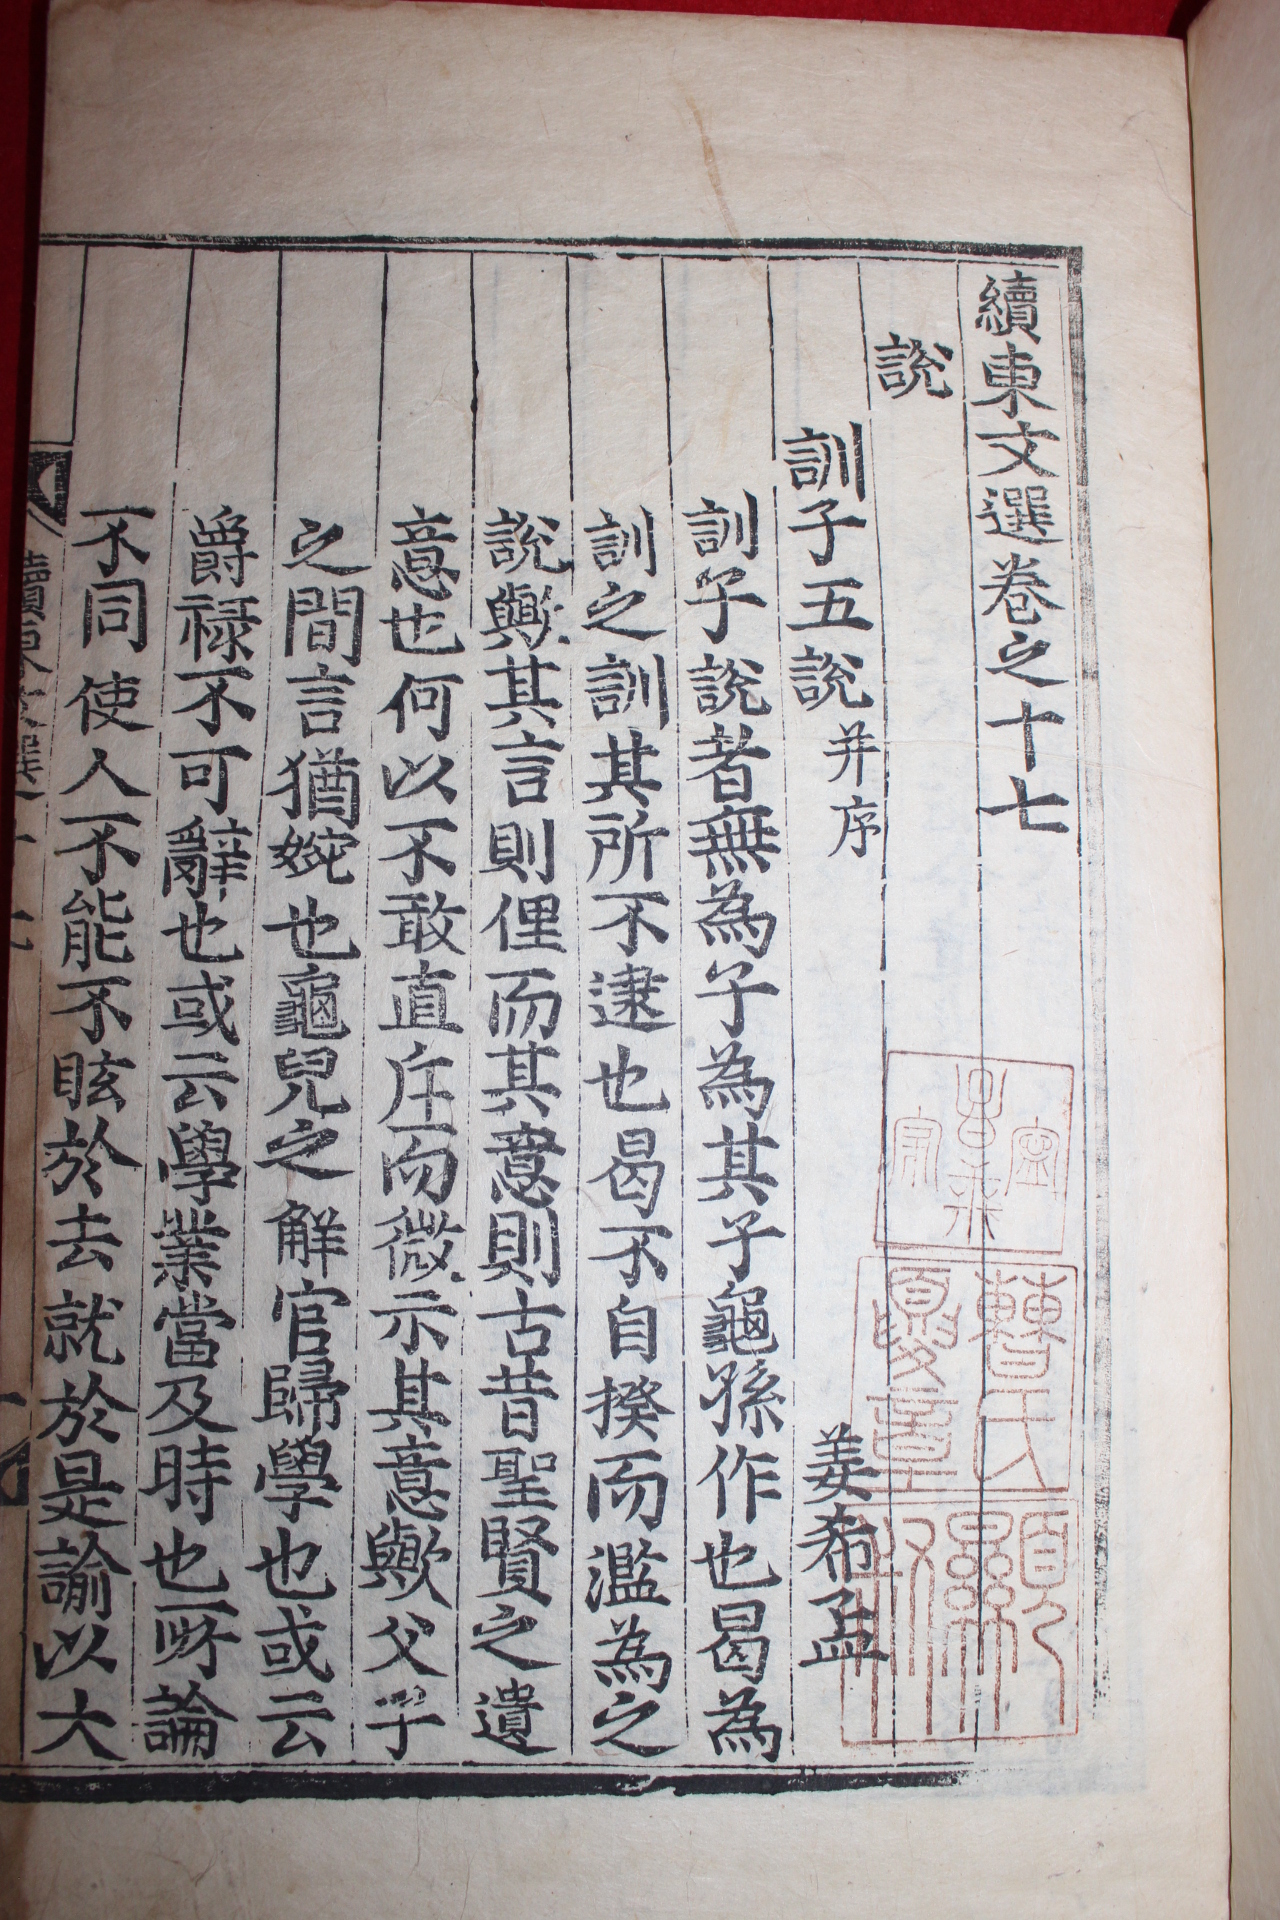 續東文選卷之十七
說
訓子五說 并序 姜希孟
訓子說者無為子為其子龜孫作也曷為
訓之訓其所不逮也曷不自揆而濫為之
說歟其言則俚而其意則古昔聖賢之遺
意也何以不敢直斥而微示其意歟父子
之間言猶婉也龜兒之解官歸學也或云
爵祿不可辭也或云學業當及時也所論
不同使人不能不眩於去就於是諭以大